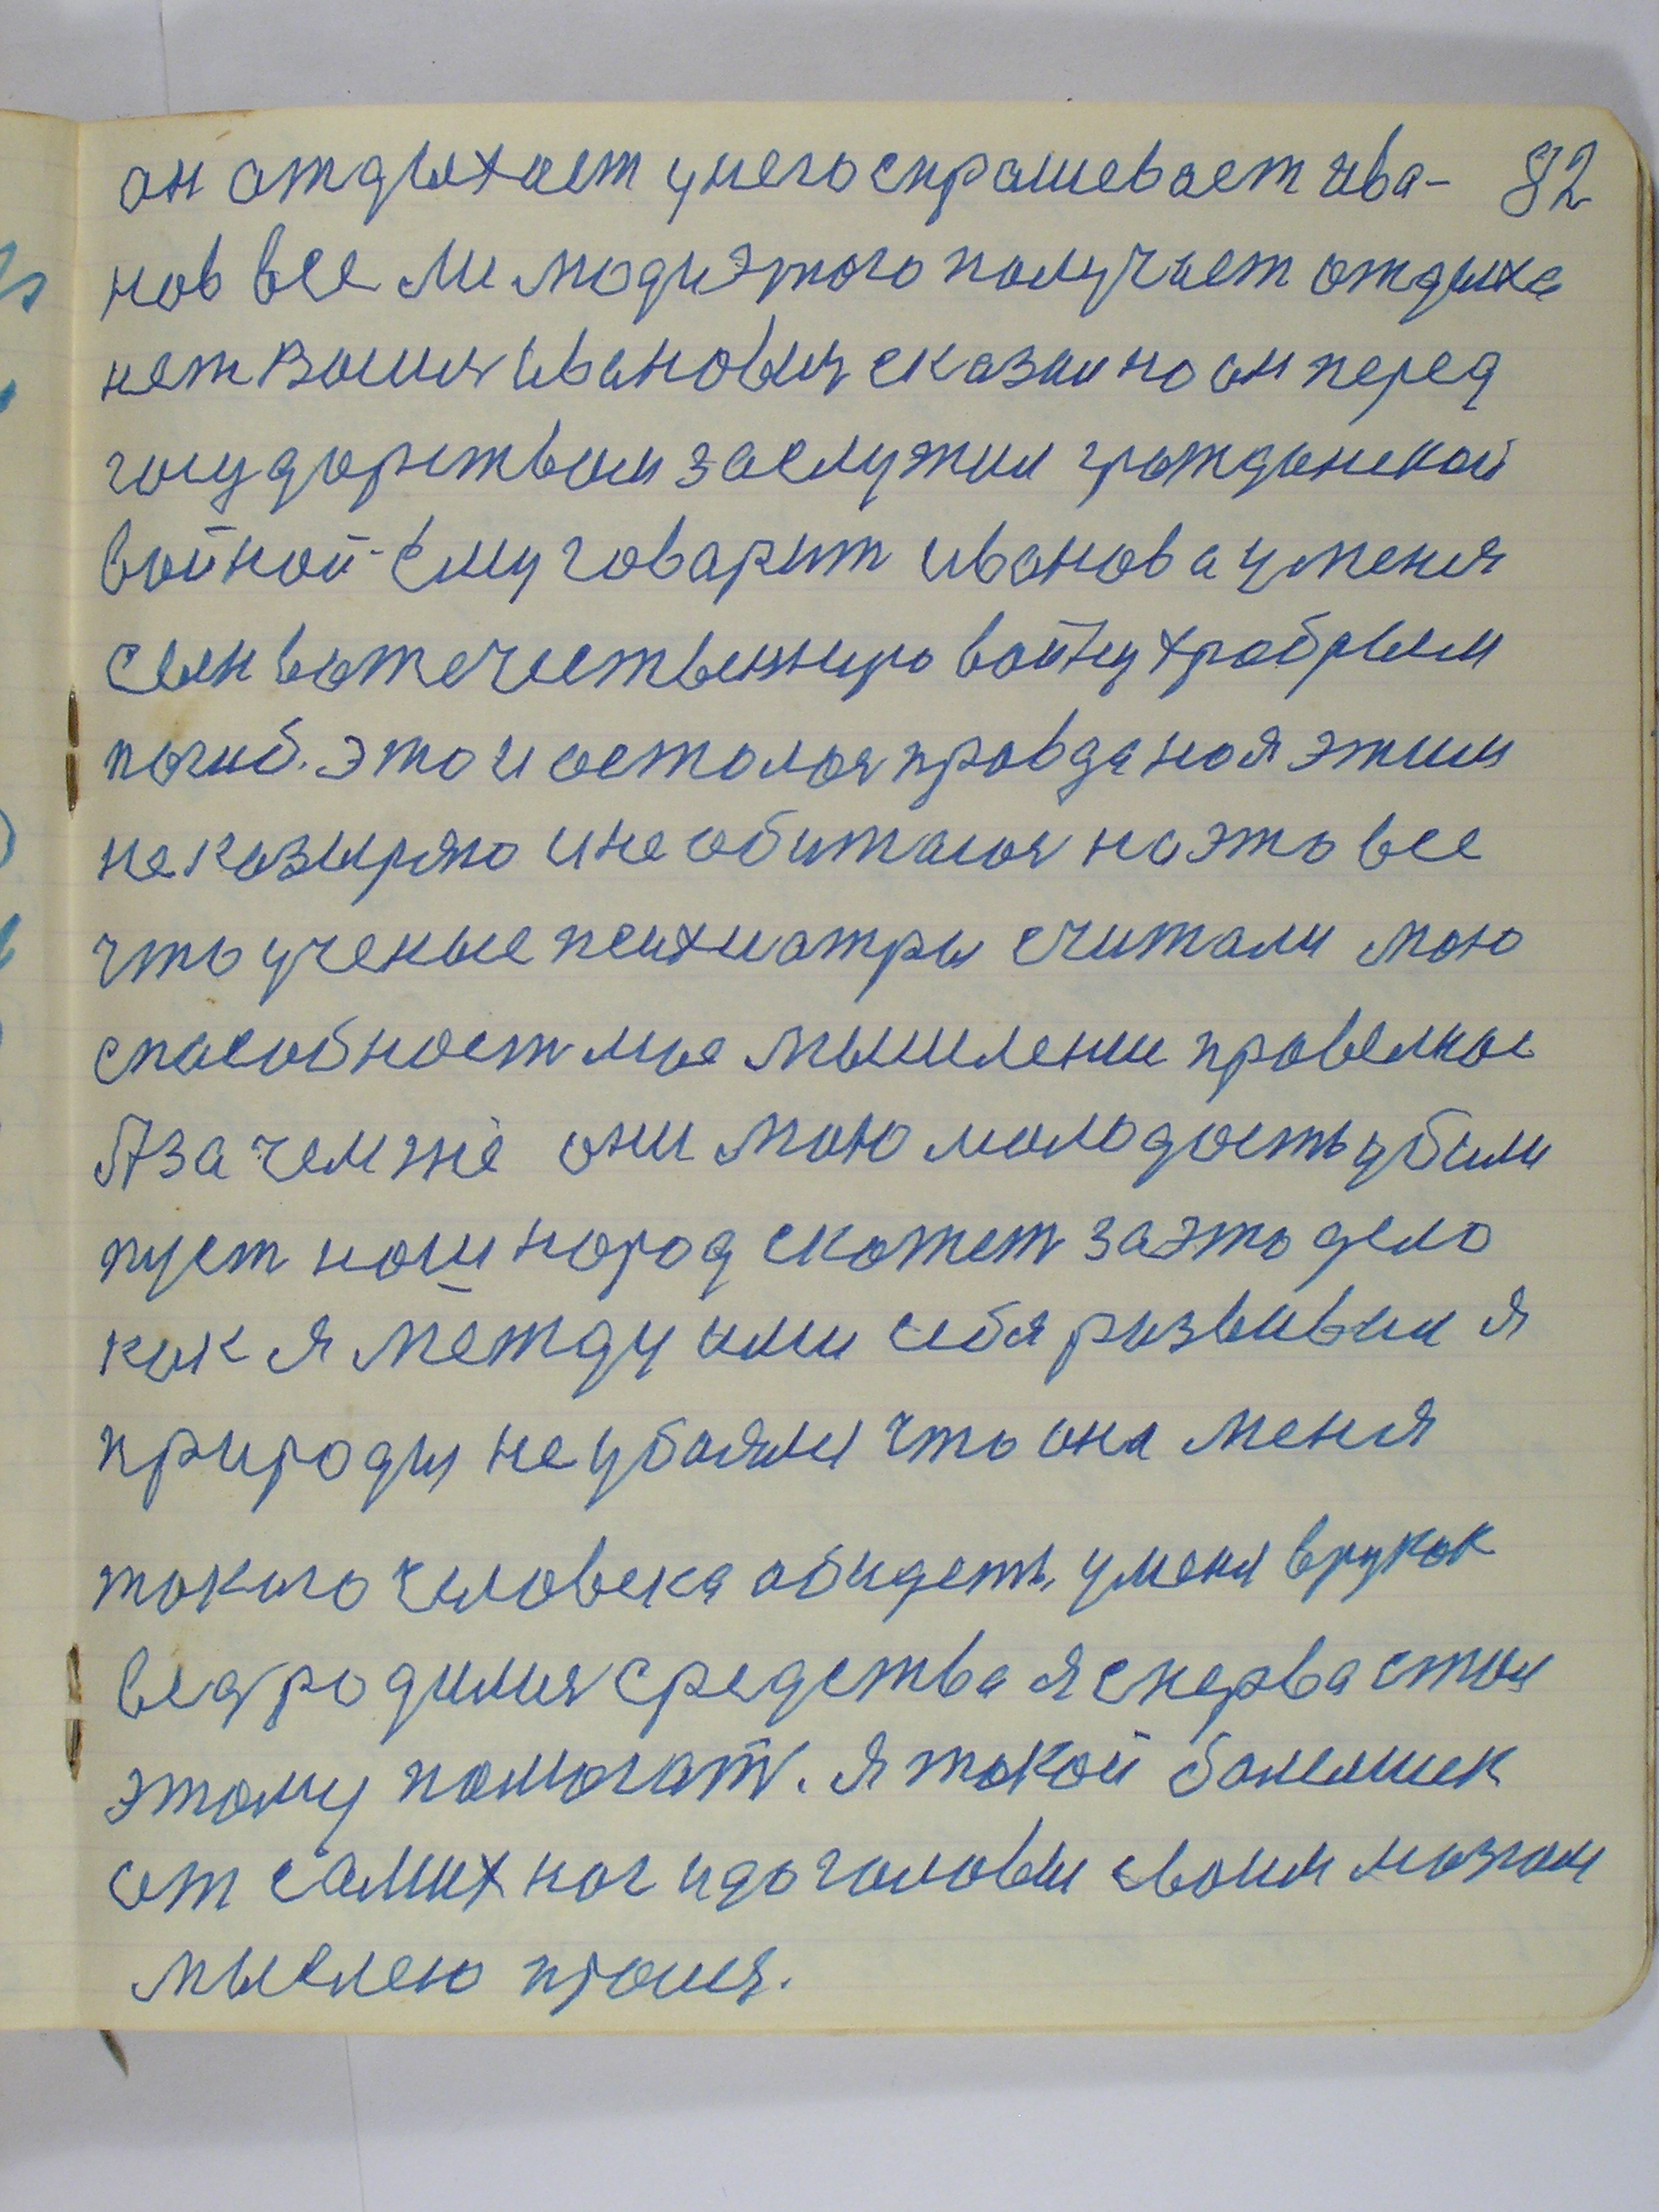 он отдыхает у него спрашевает ива- 82
нов все ли люди этого получает отдыха
нет Вашия Ивановия сказаи но он перед
государством заслужил гражданской
войной ему говарит иванов а у меня
сын вотечественную войну храбрым
погиб. это и осталося правда но я этим
не казыряю и не обитаюся на это все
что ученые психиатры считали мою
способност мое мышление провелное
А зачем же они мою молодость убили
пуст наш народ скажет за это дело
как я между ими себя развивал я
природы не убоялы что она меня
такого человека обидеть, у меня в руках
ведродимия средства я сперва стал
этому помогат. я такой болелшик
от самих ног и до головы своим мозгом
мыслею прошя.